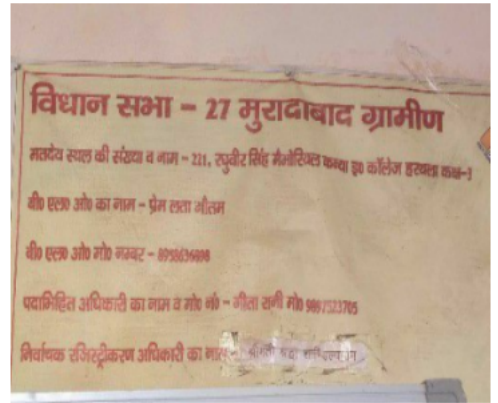 विधान सभा - 27 मुरादाबाद ग्रामीण
मतदेय स्थल की संख्या व नाम - 221, रघुवीर सिंह मैमोरियल कन्या इ० कॉलेज हरथला कक्ष-3
बी० एल० ओ० का नाम - प्रेम लता गौतम
बी० एल० ओ० मो० नम्बर - 8958636898
पदाभिहित अधिकारी का नाम व मो० नं० - गीता रानी मो० 9897523705
निर्वाचक रजिस्ट्रीकरण अधिकारी का नाम -